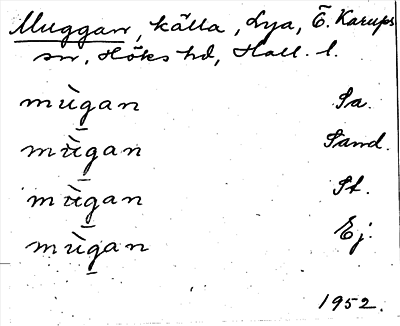 Muggan, källa, Lya, Ö. Karups
sn, Höks hd, Hall. l.
mùgan Sa.
mùgan Sand.
mùgan St.
mùgan Ej.
1952.